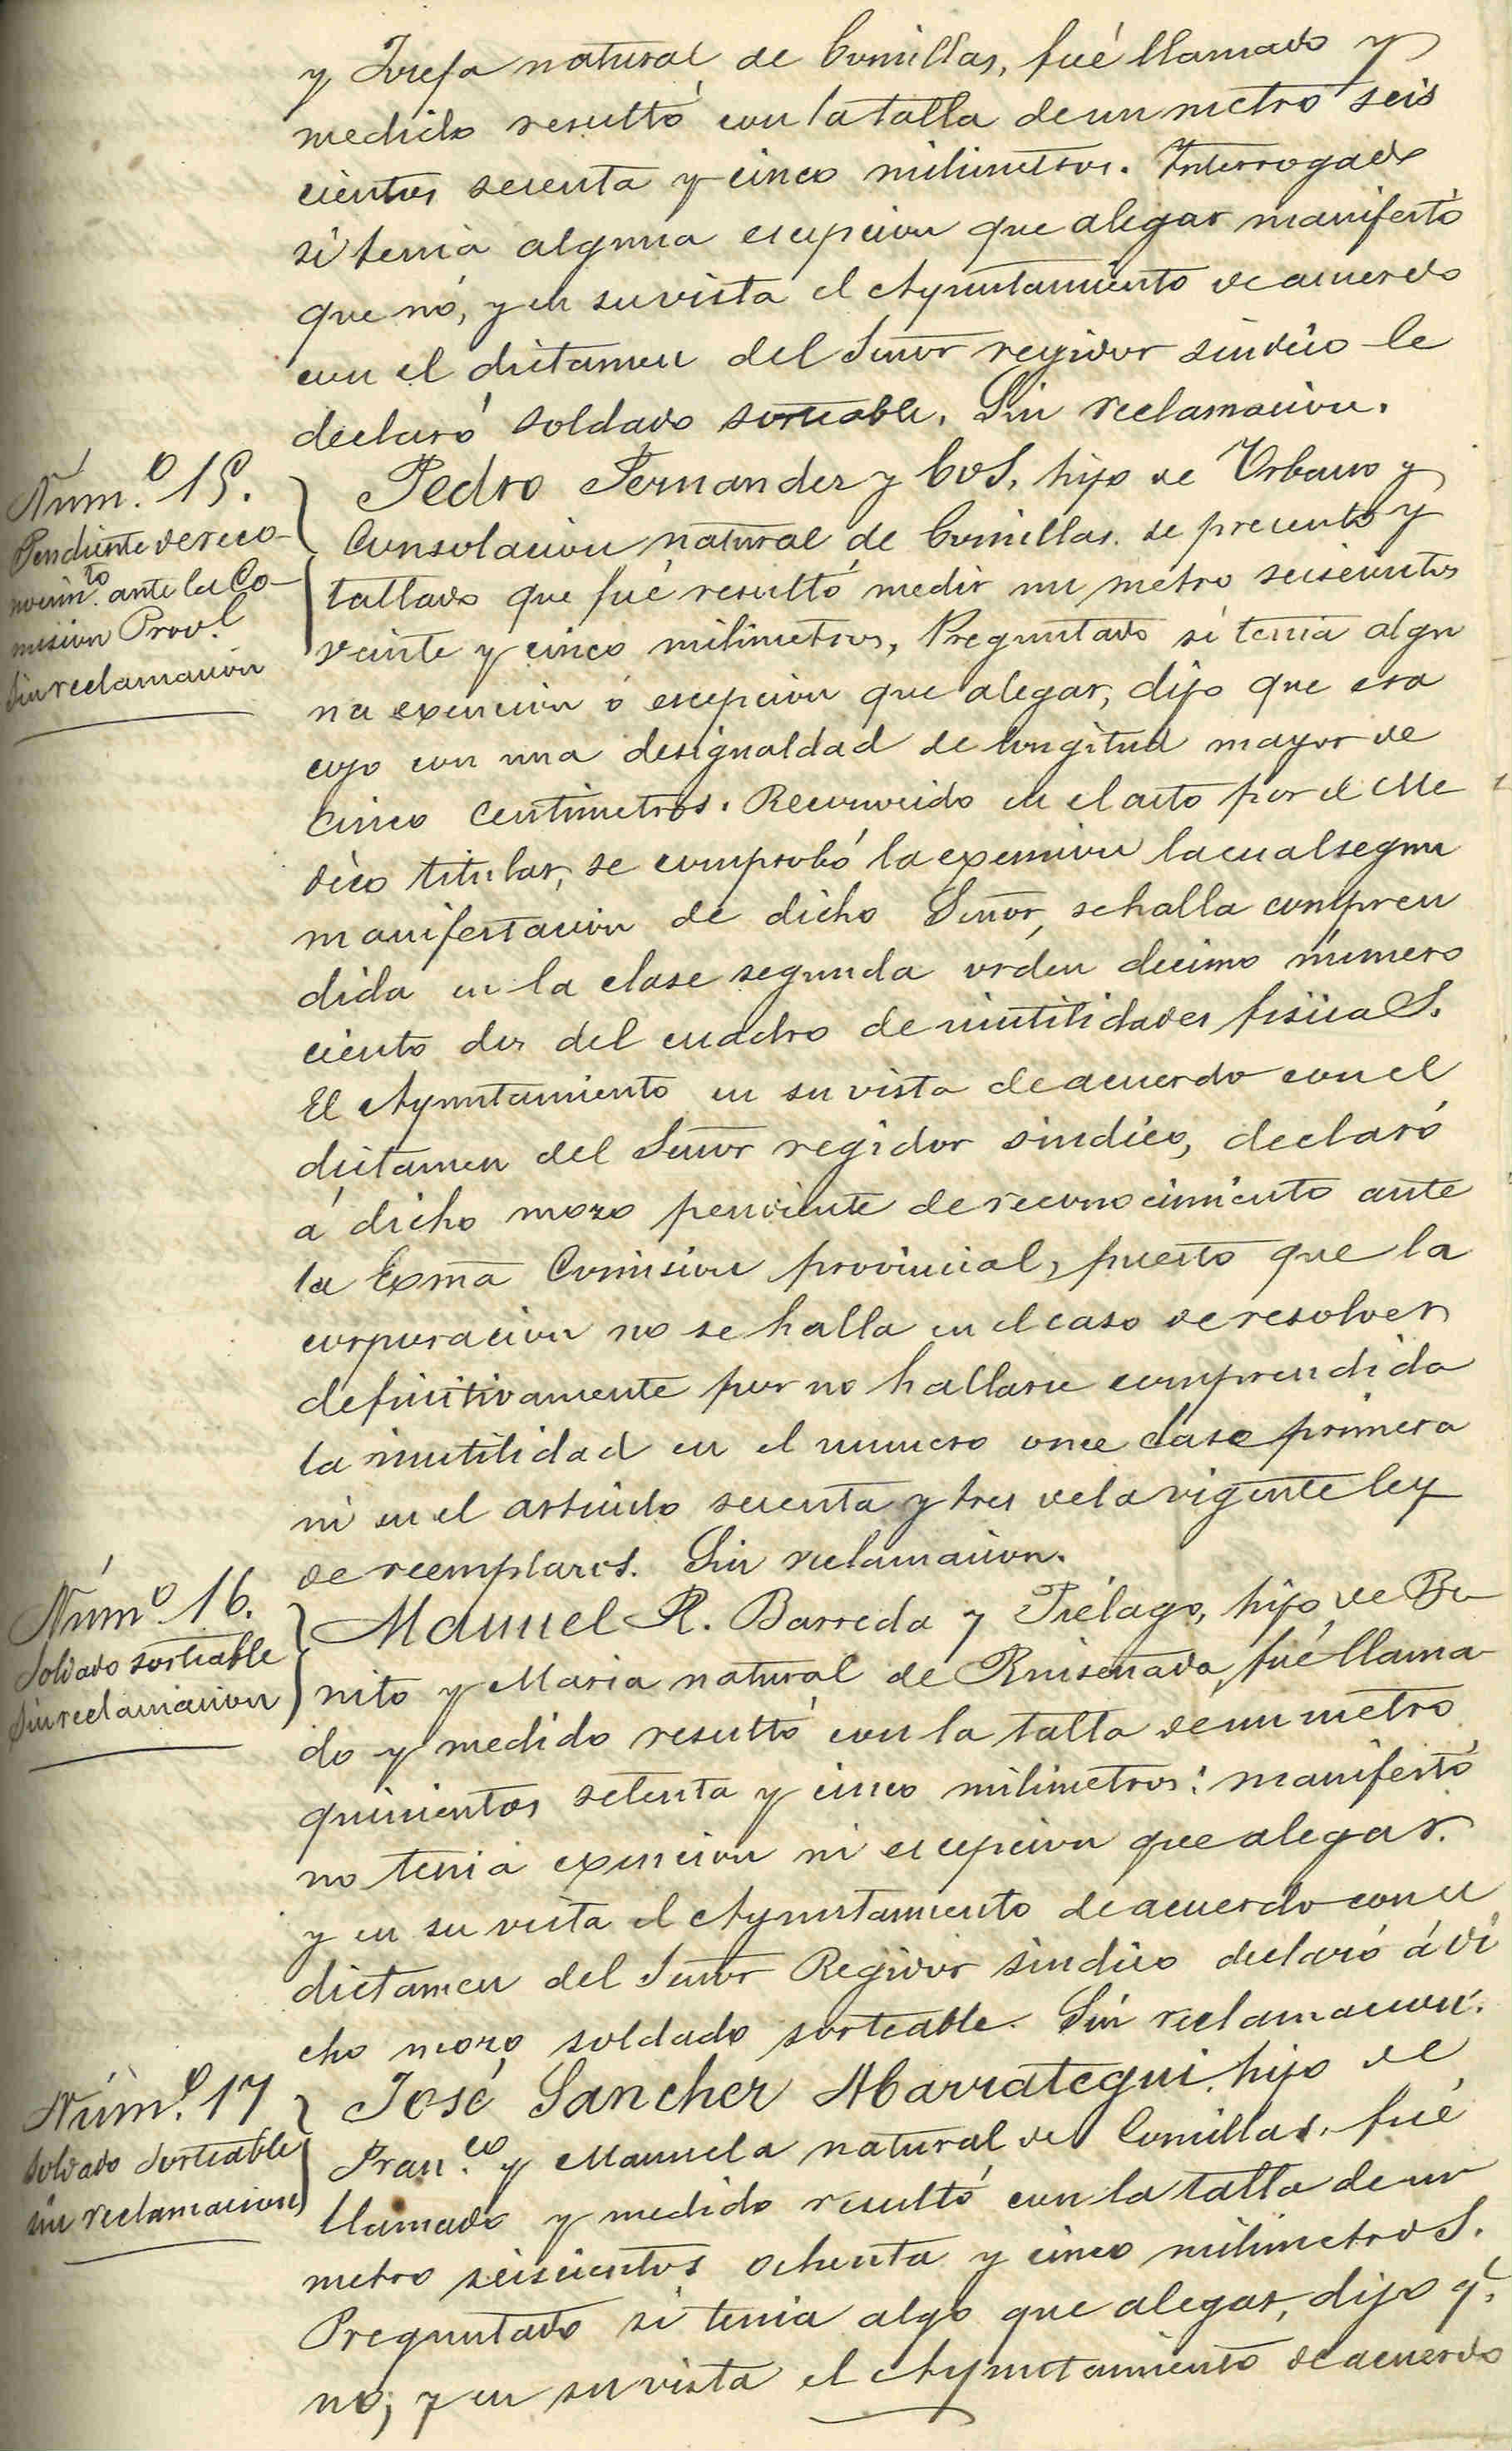 y Josefa natural de Comillas, fué llamado y
medido resultó con la talla de un metro seis
cientos sesenta y cinco milimetros. Interrogado
si tenia alguna escepcion que alegar manifestó
que nó, y en su vista el Ayuntamiento de acuerdo
con el dictamen del Señor regidor sindico le
declaró soldado sorteable. Sin reclamacion.
Núm.º 15.
Pendiente de reco-
nocim.to ante la Co-
mision Prov.l
Sin reclamacion
Pedro Fernandez y Cos, hijo de Urbano y
Consolacion natural de Comillas. se presentó y
tallado que fué resultó medir un metro seiscientos
veinte y cinco milimetros, Preguntado si tenia algu
na exencion ó escepcion que alegar, dijo que era
cojo con una desigualdad de longitud mayor de
cinco centimetros. Reconocido en el acto por el Me
dico titular, se comprobó la exencion la cual segun
manifestacion de dicho Señor, se halla compren
dida en la clase segunda orden decimo número
ciento dos del cuadro de inutilidades fisicas.
El Ayuntamiento en su vista de acuerdo con el
dictamen del Señor regidor sindico, declaró
á dicho mozo pendiente de reconocimiento ante
la Exma Comision provincial, puesto que la
corporacion no se halla en el caso de resolver
definitivamente por no hallarse comprendida
la inutilidad en el numero once clase primera
ni en el articulo sesenta y tres de la vigente ley
de reemplazos. Sin reclamacion.
Núm.º 16.
Soldado sorteable
Sin reclamacion
Manuel R. Barreda y Piélago, hijo de Be-
nito y Maria natural de Ruiseñada, fué llama-
do y medido resultó con la talla de un metro
quinientos setenta y cinco milimetros: manifestó
no tenia exencion ni escepcion que alegar.
y en su vista el Ayuntamiento de acuerdo con el
dictamen del Señor Regidor sindico declaró á di
cho mozo soldado sorteable. Sin reclamacion.
Núm.º 17
Soldado Sorteable
sin reclamacion
José Sanchez Abarrategui, hijo de
Fran.co y Manuela natural de Comillas, fué
llamado y medido resultó con la talla de un
metro seiscientos ochenta y cinco milimetros.
Preguntado si tenia algo que alegar, dijo q.e
no; y en su vista el Ayuntamiento de acuerdo